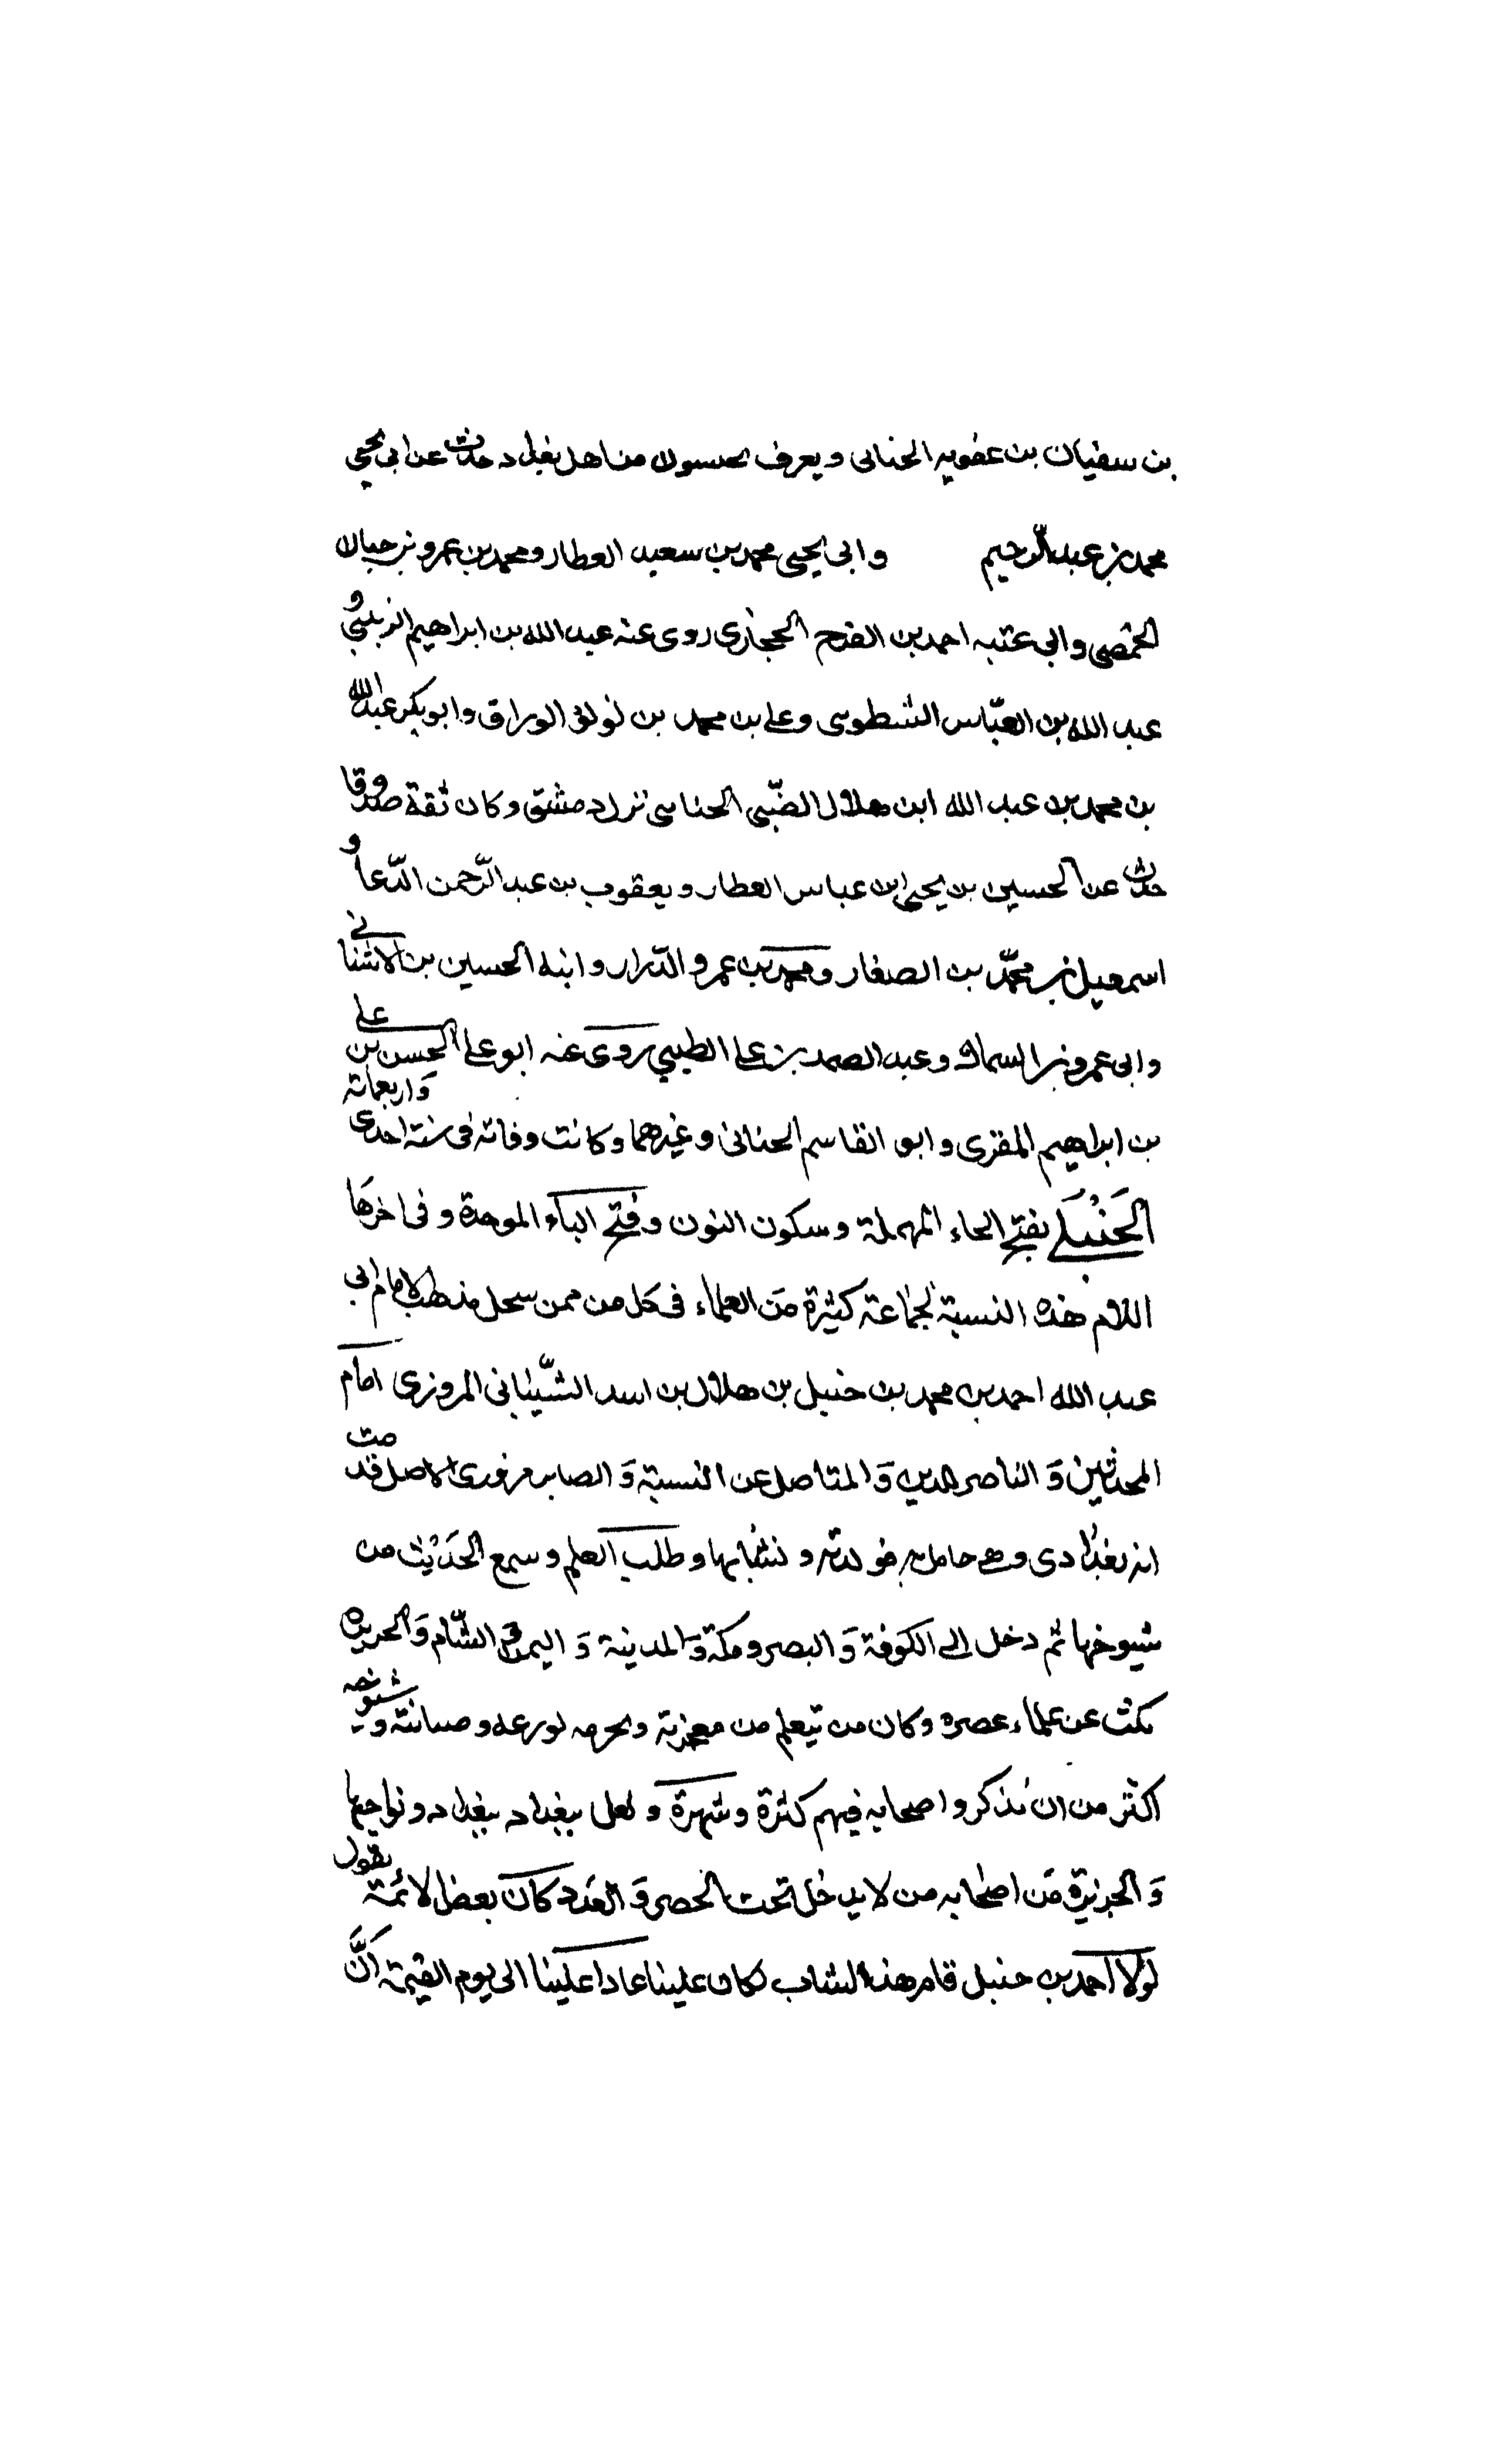 بن سفيان بن عفويه الحنائى ويعرف بحسون من اهل بغداد حدث عن ابى يحيى
محمد بن عبد الرحيم وابى يحيى محمد بن سعيد العطار ومحمد بن عمرو بن حيان
الحمصى وابى عتبه احمد بن الفرج الحجازى روى عنه عبد الله بن ابراهيم الزبيبى و
عبد الله بن العباس الشطوى وعلى بن محمد بن لولؤ الوراق وابو بكر عبد الله
بن محمد بن عبد الله ابن هلال الضّبى الحنائى نزل دمشق وكان ثقة صدوقا
حدث عن الحسين بن يحيى ابن عباس العطار ويعقوب بن عبد الرّحمن الدّعا و
اسمعيل بن محمّد بن الصفار ومحمد بن عمرو الدرار وابنه الحسين بن الاشنانى
وابى عمرو بن السماك وعبد الصمد بن على الطيبى روى عنه ابو على الحسن بن على
بن ابراهيم المقرى وابو القاسم الحنائى وغيرهما وكانت وفاته فى سنة احدى وَاربعمائة
الحَنْبَلى بفتح الحاء المهملة وسكون النون وفتح الباء الموحدة وفى اخرها
اللام هذه النسبة لجماعة كثيرة من العلماء فى كل من ممن سحل مذهب الامام ابى
عبد الله احمد بن محمد بن حنبل بن هلال بن اسد الشّيبانى المروزى امام
المحدثين وَ الناصر للدين وَ المتاصل عن النسبة وَ الصابر مروزى الاصل قدمت
انه بغدادى وهى حامل به فولدته ونشابها وطلب العلم وسمع الحَديث من
شيوخها ثم دخل الى الكوفة وَ البصر ومكة وَ المدينة وَ اليمن وَ الشّام وَ الجزيره
كتب عن علماء عصره وكان من تيعلم من معجزته وبحرمه لورعه وصيانته وشيوخه
اكثر من ان نذكر واصحابه فيهم كثرة وشهرة ولعل ببغداد ببغداد ونواحيها
وَ الجزيرة مَن اصحابه من لا يدخل تحت الحصر وَ العَدد كان بعض الائمة يقول
لولا احمد بن حنبل قام هذا الشاب لكان علينا عادا علينا الى يوم القيمة اَنَّ